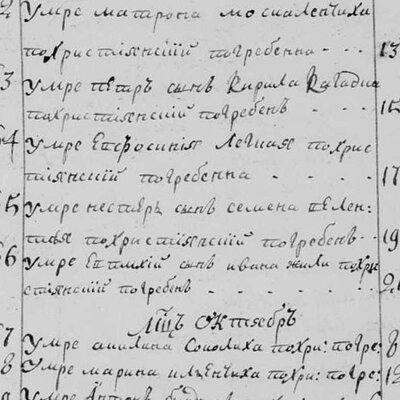 Умре матрона москаленчиха
похристиянский погребенна - - - 13
3 Умре петръ сынъ Кирила
похристиянский погребенъ - - - 15
4 Умре Евфросиния Легкая похрис
тиянский погребенна - - - - 17
5 Умре нестеръ сынъ семена пелен:
похристиянский погребенъ - - 19
6 Умре Евтихий сынъ ивана жили похри
стиянский погребенъ - - - -
Мцъ Октябръ
7 Умре акилина Соколиха похри: погре: 8
8 Умре марина илъенчиха похри: погре: 12
Умре Антонъ